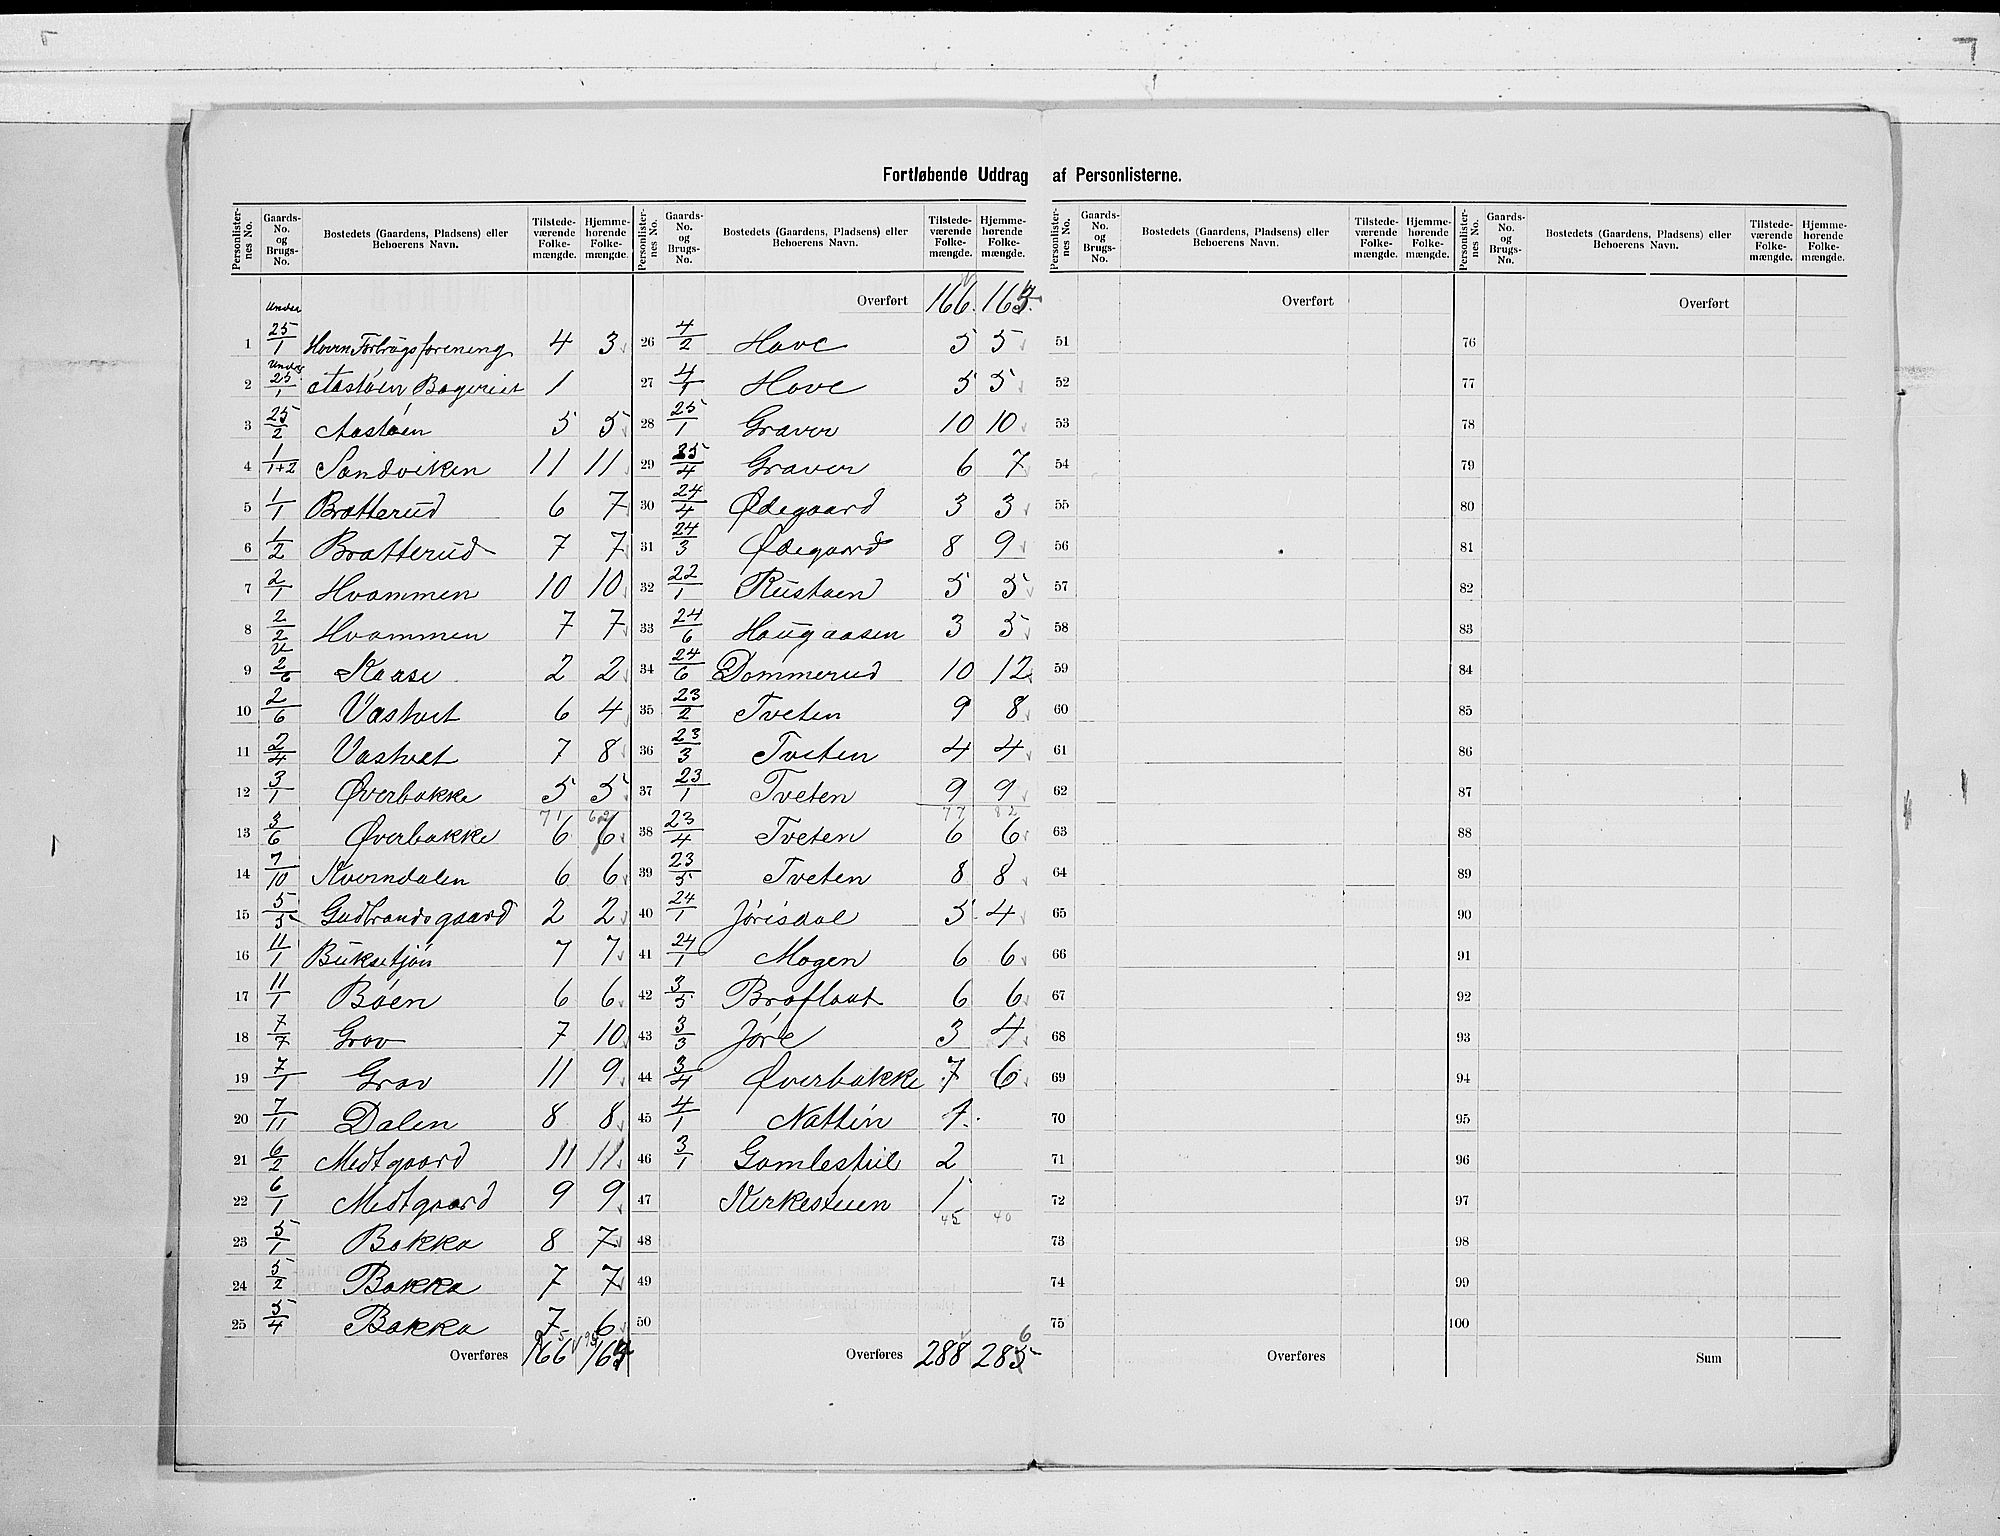 Fortløbende Uddrag af Personlisterne.
Personlister-nes No. Gaards-No. og Brugs-No. Bostedets (Gaardens, Pladsens) eller Beboerens Navn. Tilstede-værende Folke-mængde. Hjemme-hørende Folke-mængde.
Personlister-nes No. Gaards-No. og Brugs-No. Bostedets (Gaardens, Pladsens) eller Beboerens Navn. Tilstede-værende Folke-mængde. Hjemme-hørende Folke-mængde.
Personlister-nes No. Gaards-No. og Brugs-No. Bostedets (Gaardens, Pladsens) eller Beboerens Navn. Tilstede-værende Folke-mængde. Hjemme-hørende Folke-mængde.
Personlister-nes No. Gaards-No. og Brugs-No. Bostedets (Gaardens, Pladsens) eller Beboerens Navn. Tilstede-værende Folke-mængde. Hjemme-hørende Folke-mængde.
1 Under 25/1 4 3
2 Under 25/1 Aastøen Bageriet 1
3 25/2 Aastøen 5 5
4 1/1+2 Sandviken 11 11
5 1/1 Bratterud 6 7
6 1/2 Bratterud 7 7
7 2/1 Hvammen 10 10
8 2/2 Hvammen 7 7
9 2/6 Kaase 2 2
10 2/6 Vastveit 6 4
11 2/4 Vastveit 7 8
12 3/1 Øverbakke 5 5
71 62
13 3/6 Øverbakke 6 6
14 7/10 Kverndalen 6 6
15 5/5 Gudbrandsgaard 2 2
16 11/1 Buksetjøn 7 7
17 11/1 Bøen 6 6
18 7/7 Grav 7 10
19 7/1 Grav 11 9
20 7/11 Dalen 8 8
21 6/2 Medtgaard 11 11
22 6/1 Medtgaard 9 9
23 5/1 Bakka 8 7
24 5/2 Bakka 7 7
25 5/4 Bakka 7 6
Overføres 166
Overført 166
26 4/2 Hove 5 5
27 4/1 Hove 5 5
28 25/1 Graver 10 10
29 25/4 Graver 6 7
30 24/4 Ødegaard 3 3
31 24/3 Ødegaard 8 9
32 22/1 Rustaen 5 5
33 24/6 Haugaasen 3 5
34 24/6 Dommerud 10 12
35 23/2 Tveten 9 8
36 23/3 Tveten 4 4
37 23/1 Tveten 9 9
77 82
38 23/4 Tveten 6 6
39 23/5 Tveten 8 8
40 24/1 Jørisdal 5 4
41 24/1 Mogen 6 6
42 3/5 Brøflaat 6 6
43 3/3 Jøre 3 4
44 3/4 Øverbakke 7 6
45 4/1 1
46 3/1 Gamlestul 2
47 Kirkestuen 1
45 40
48
49
50
Overføres 288 285 6
Overført
51
52
53
54
55
56
57
58
59
60
61
62
63
64
65
66
67
68
69
70
71
72
73
74
75
Overføres
Overført
76
77
78
79
80
81
82
83
84
85
86
87
88
89
90
91
92
93
94
95
96
97
98
99
100
Sum